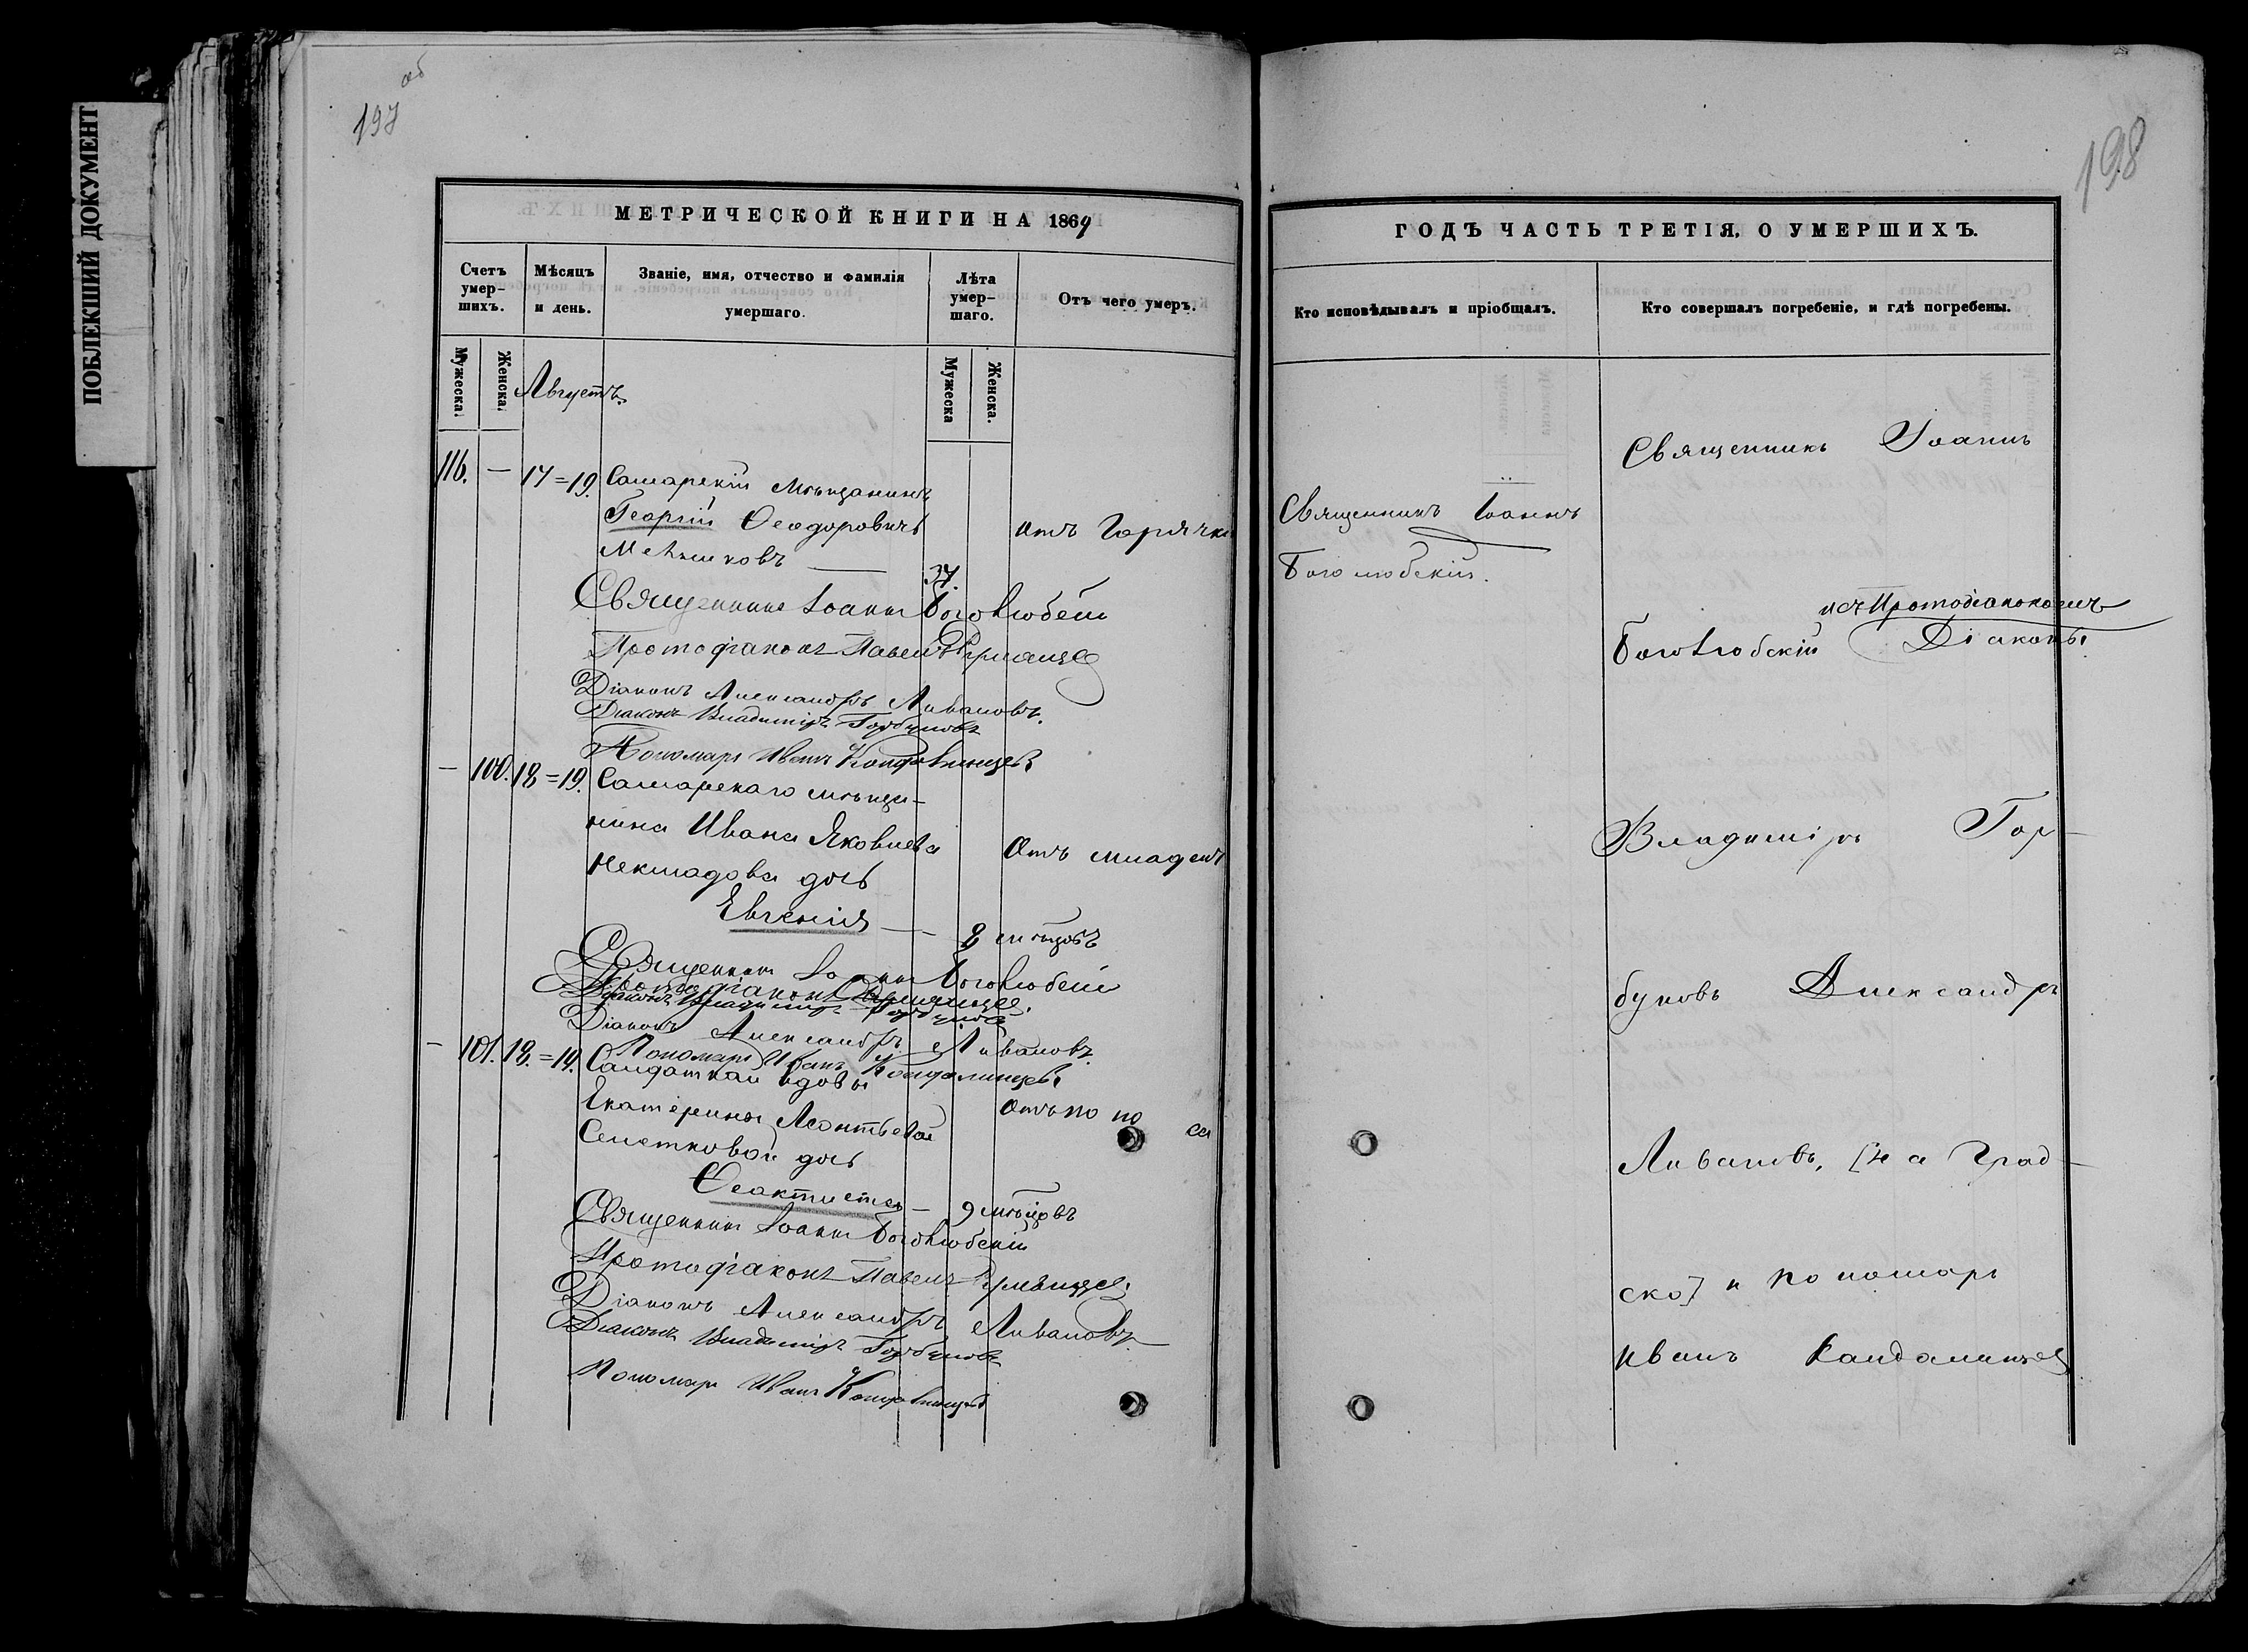 ПОБЛЕКШИЙ ДОКУМЕНТ
об
197
МЕТРИЧЕСКОЙ КНИГИ НА 1869
Счетъ умер-шихъ.
Мѣсяцъ и день.
Званіе, имя, отчество и фамилія умершаго.
Лѣта умер-шаго.
Отъ чего умеръ.
Мужеска
Женска.
Августъ.
Мужеска
Женска.
116. — 17=19. Самарскій мѣщанинъ
Георгій Ѳеодоровичъ
отъ Горячки
37.
Священникъ Іоаннъ Боголюбскій
Протодіаконъ Павелъ
Діаконъ Александръ Ливановъ.
Діаконъ Владиміръ Горбуновъ
Пономарь Иванъ Кандалинцевъ
— 100. 18=19. Самарскаго мѣща-
нина Ивана Яковлева
Отъ младен
дочь
Евгенія — 8 мѣсяцовъ
Священникъ Іоаннъ Боголюбскій
Протодіаконъ
Діаконъ Владиміръ Горбуновъ
Діаконъ Александръ Ливановъ.
Пономарь Иванъ Кандалинцевъ
— 101. 18.=19. Солдаткай вдовы
Екатерины Леонтьевой
отъ по но са
дочь
Ѳеактиста — 9 мѣсяцовъ
Священникъ Іоаннъ Боголюбскій
Протодіаконъ Павелъ
Діаконъ Александръ Ливановъ.
Діаконъ Владиміръ Горбуновъ
Пономарь Иванъ Кандалинцевъ
198
ГОДЪ ЧАСТЬ ТРЕТІЯ, О УМЕРШИХЪ.
Кто исповѣдывалъ и пріобщалъ.
Кто совершалъ погребеніе, и гдѣ погребены.
Священникъ Іоаннъ
Боголюбскій.
Священникъ Іоаннъ
и съ Протодіакономъ
Боголюбскій Діаконы
Владиміръ Гор-
буновъ Александръ
Ливановъ, [на Град-
ско] и пономарь
Иванъ Кандалинцевъ